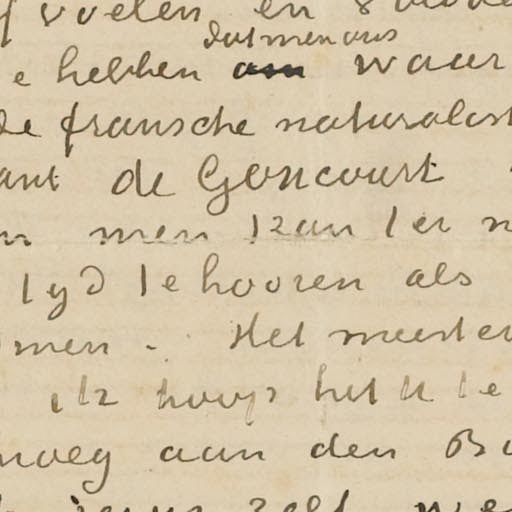 voelen en
dat men ons
e hebben waar
de fransche naturalist
ant de Goncourt
n men kan ter n
tyd te hooren als
men. Het meester
ik hoop het U te
noeg aan den Bu
zelf we